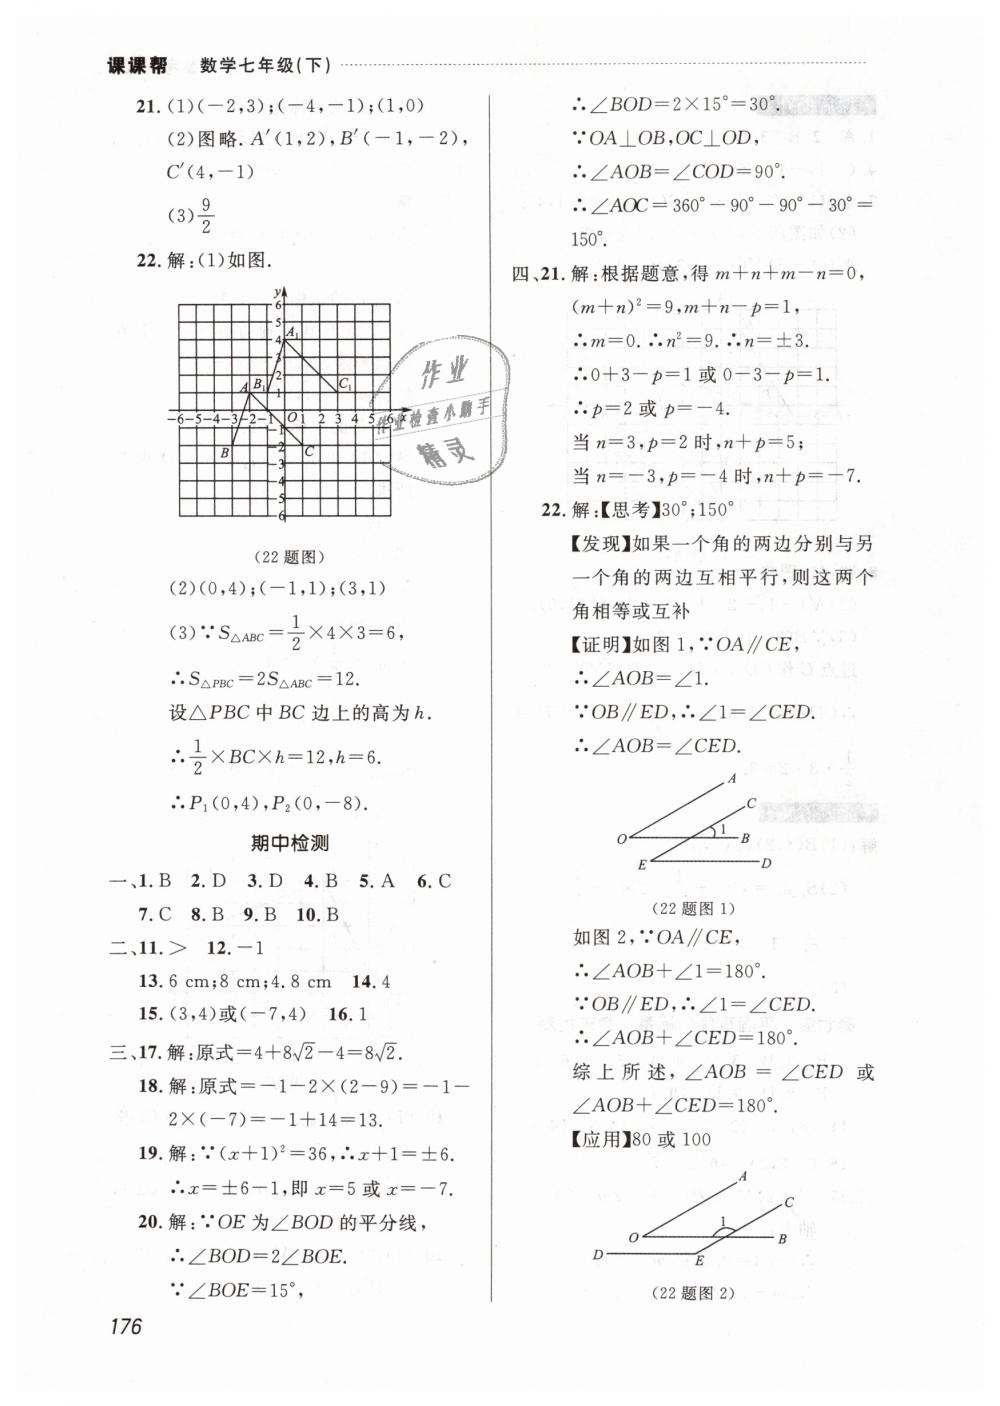 课课帮 数学七年级(下)
21. (1)(-2,3);(-4,-1);(1,0)
(2)图略. A′(1,2),B′(-1,-2),
C′(4,-1)
(3) 9/2
22. 解:(1)如图.
y
6
5
4 A₁
3
2
A B₁ 1 C₁
-6-5-4-3-2-1 O 1 2 3 4 5 6 x
B -2 C
-3
-5
-6
(22题图)
(2)(0,4);(-1,1);(3,1)
(3)∵S△ABC=1/2×4×3=6,
∴S△PBC=2S△ABC=12.
设△PBC中BC边上的高为h.
∴1/2×BC×h=12,h=6.
∴P₁(0,4),P₂(0,-8).
期中检测
一、1. B 2. D 3. D 4. B 5. A 6. C
7. C 8. B 9. B 10. B
二、11. > 12. -1
13. 6 cm;8 cm;4.8 cm 14. 4
15. (3,4)或(-7,4) 16. 1
三、17. 解:原式=4+8√2-4=8√2.
18. 解:原式=-1-2×(2-9)=-1-
2×(-7)=-1+14=13.
19. 解:∵(x+1)²=36,∴x+1=±6.
∴x=±6-1,即x=5或x=-7.
20. 解:∵OE为∠BOD的平分线,
∴∠BOD=2∠BOE.
∵∠BOE=15°,
176
∴∠BOD=2×15°=30°.
∵OA⊥OB,OC⊥OD,
∴∠AOB=∠COD=90°.
∴∠AOC=360°-90°-90°-30°=
150°.
四、21. 解:根据题意,得m+n+m-n=0,
(m+n)²=9,m+n-p=1,
∴m=0. ∴n²=9. ∴n=±3.
∴0+3-p=1或0-3-p=1.
∴p=2或p=-4.
当n=3,p=2时,n+p=5;
当n=-3,p=-4时,n+p=-7.
22. 解:【思考】30°;150°
【发现】如果一个角的两边分别与另
一个角的两边互相平行,则这两个
角相等或互补
【证明】如图1,∵OA∥CE,
∴∠AOB=∠1.
∵OB∥ED,∴∠1=∠CED.
∴∠AOB=∠CED.
A
C
O 1 B
E D
(22题图1)
如图2,∵OA∥CE,
∴∠AOB+∠1=180°.
∵OB∥ED,∴∠1=∠CED.
∴∠AOB+∠CED=180°.
综上所述,∠AOB=∠CED或
∠AOB+∠CED=180°.
【应用】80或100
A
C
1
O B
D E
(22题图2)
作业
作业检查小助手
精灵